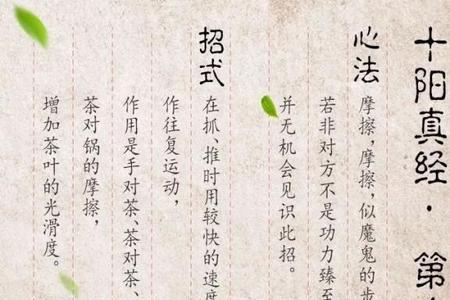 十阳真经·第
心法
摩擦，摩擦，似魔鬼的步
若非对方不是功力臻至
并无机会见识此招。
招式
在抓、推时用较快的速度
作往复运动，
作用是手对茶、茶对茶、
茶对锅的摩擦，
增加茶叶的光滑度。